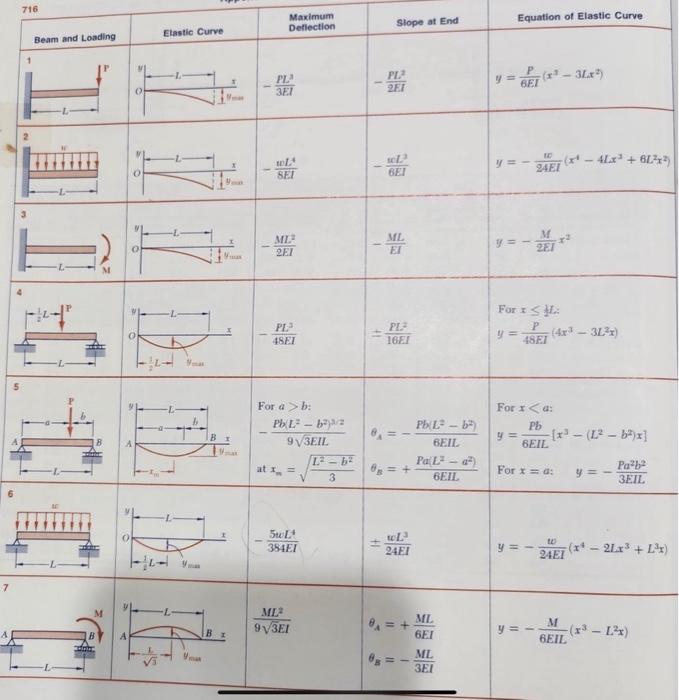 716
Beam and Loading
Elastic Curve
Maximum
Deflection
Slope at End
Equation of Elastic Curve
1
P
L
y
L
O
x
y_max
− PL³/3EI
− PL²/2EI
y = P/6EI (x³ − 3Lx²)
2
w
L
y
L
O
x
y_max
− wL⁴/8EI
− wL³/6EI
y = − w/24EI (x⁴ − 4Lx³ + 6L²x²)
3
L
M
y
L
O
x
y_max
− ML²/2EI
− ML/EI
y = − M/2EI x²
4
½L
P
L
y
L
O
x
½L
y_max
− PL³/48EI
± PL²/16EI
For x ≤ ½L:
y = P/48EI (4x³ − 3L²x)
5
P
a
b
A
B
L
y
L
a
b
A
B
x
x_m
y_max
For a > b:
− Pb(L² − b²)^3/2 / 9√3EIL
at x_m = √(L² − b²)/3
θ_A = − Pb(L² − b²)/6EIL
θ_B = + Pa(L² − a²)/6EIL
For x < a:
y = Pb/6EIL [x³ − (L² − b²)x]
For x = a: y = − Pa²b²/3EIL
6
w
L
y
L
O
x
½L
y_max
− 5wL⁴/384EI
± wL³/24EI
y = − w/24EI (x⁴ − 2Lx³ + L³x)
7
M
A
B
L
y
L
A
B
x
L/√3
y_max
ML²/9√3EI
θ_A = + ML/6EI
θ_B = − ML/3EI
y = − M/6EIL (x³ − L²x)